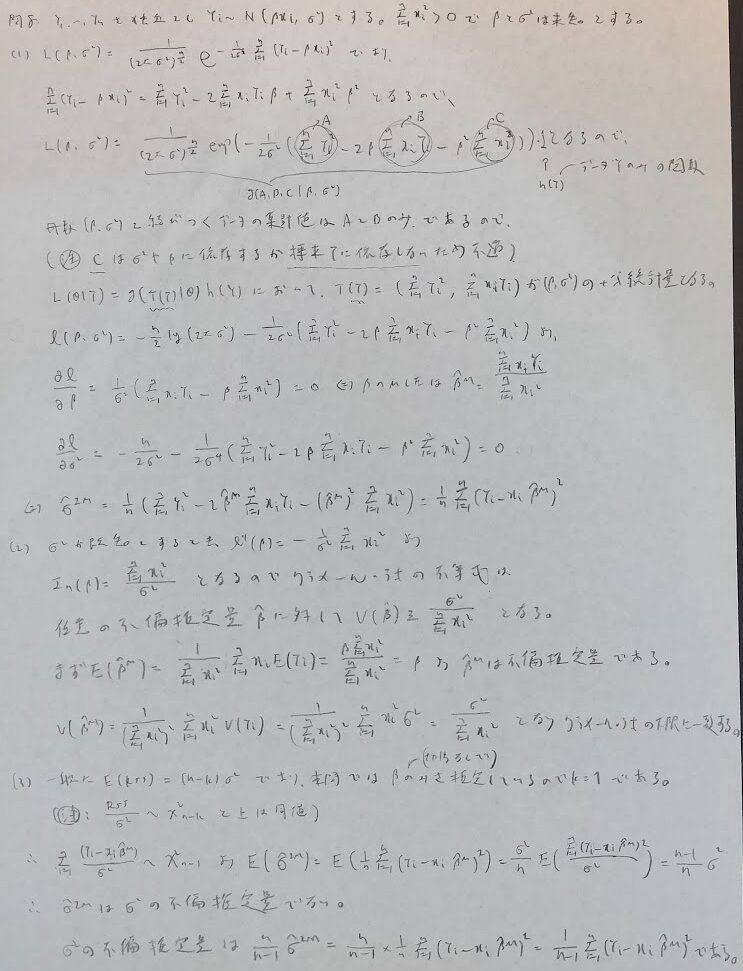 問 Y₁, …, Yₙ を独立とし Yᵢ ~ N(βxᵢ, σ²) とする。 Σᵢ₌₁ⁿ xᵢ² > 0 で β と σ² は未知とする。
(1) L(β, σ²) = 1/(2πσ²)^{n/2} e^{-1/(2σ²) Σᵢ₌₁ⁿ (Yᵢ - βxᵢ)²} であり、
Σᵢ₌₁ⁿ (Yᵢ - βxᵢ)² = Σᵢ₌₁ⁿ Yᵢ² - 2 Σᵢ₌₁ⁿ xᵢYᵢ β + Σᵢ₌₁ⁿ xᵢ² β² となるので、
A B C
L(β, σ²) = 1/(2πσ²)^{n/2} exp(-1/(2σ²) (Σᵢ₌₁ⁿ Yᵢ² - 2β Σᵢ₌₁ⁿ xᵢYᵢ - β² Σᵢ₌₁ⁿ xᵢ²))・1 となるので、
g(A, B, C | β, σ²) ↑ h(Y) データYのみの関数
(β, σ²) と結びつくデータの集計値は A と B のみ であるので、
(注 C は σ² や β に依存するが標本Yに依存しないため不適)
L(θ|Y) = g(T(Y)|θ) h(Y) において、T(Y) = (Σᵢ₌₁ⁿ Yᵢ², Σᵢ₌₁ⁿ xᵢYᵢ) が (β, σ²) の十分統計量となる。
l(β, σ²) = -n/2 log(2πσ²) - 1/(2σ²) (Σᵢ₌₁ⁿ Yᵢ² - 2β Σᵢ₌₁ⁿ xᵢYᵢ - β² Σᵢ₌₁ⁿ xᵢ²) より、
∂l/∂β = 1/σ² (Σᵢ₌₁ⁿ xᵢYᵢ - β Σᵢ₌₁ⁿ xᵢ²) = 0 ⇔ β の MLE は β̂ᴹ = Σᵢ₌₁ⁿ xᵢYᵢ / Σᵢ₌₁ⁿ xᵢ²
∂l/∂σ² = -n/(2σ²) - 1/(2σ⁴) (Σᵢ₌₁ⁿ Yᵢ² - 2β Σᵢ₌₁ⁿ xᵢYᵢ - β² Σᵢ₌₁ⁿ xᵢ²) = 0
⇔ σ̂²ᴹ = 1/n (Σᵢ₌₁ⁿ Yᵢ² - 2β̂ᴹ Σᵢ₌₁ⁿ xᵢYᵢ - (β̂ᴹ)² Σᵢ₌₁ⁿ xᵢ²) = 1/n Σᵢ₌₁ⁿ (Yᵢ - xᵢβ̂ᴹ)²
(2) σ² が既知とするとき、l''(β) = -1/σ² Σᵢ₌₁ⁿ xᵢ² より
Iₙ(β) = Σᵢ₌₁ⁿ xᵢ² / σ² となるので クラメール・ラオの不等式は
任意の不偏推定量 β̂ に対して V(β̂) ≧ σ² / Σᵢ₌₁ⁿ xᵢ² となる。
まず E(β̂ᴹ) = 1/Σᵢ₌₁ⁿ xᵢ² Σᵢ₌₁ⁿ xᵢE(Yᵢ) = βΣᵢ₌₁ⁿ xᵢ² / Σᵢ₌₁ⁿ xᵢ² = β より β̂ᴹ は不偏推定量である。
V(β̂ᴹ) = 1/(Σᵢ₌₁ⁿ xᵢ²)² Σᵢ₌₁ⁿ xᵢ² V(Yᵢ) = 1/(Σᵢ₌₁ⁿ xᵢ²)² Σᵢ₌₁ⁿ xᵢ² σ² = σ² / Σᵢ₌₁ⁿ xᵢ² となり クラメール・ラオの下限に一致する。
(3) 一般に E(RSS) = (n-k)σ² であり、本問では β のみを推定しているので k=1 である。
(注: RSS/σ² ~ χ²ₙ₋ₖ と上は同値)
∴ Σᵢ₌₁ⁿ (Yᵢ - xᵢβ̂ᴹ)²/σ² ~ χ²ₙ₋₁ より E(σ̂²ᴹ) = E(1/n Σᵢ₌₁ⁿ (Yᵢ - xᵢβ̂ᴹ)²) = σ²/n E(Σᵢ₌₁ⁿ (Yᵢ - xᵢβ̂ᴹ)²/σ²) = (n-1)/n σ²
∴ σ̂²ᴹ は σ² の不偏推定量でない。
σ² の不偏推定量は n/(n-1) σ̂²ᴹ = n/(n-1) × 1/n Σᵢ₌₁ⁿ (Yᵢ - xᵢβ̂ᴹ)² = 1/(n-1) Σᵢ₌₁ⁿ (Yᵢ - xᵢβ̂ᴹ)² である。